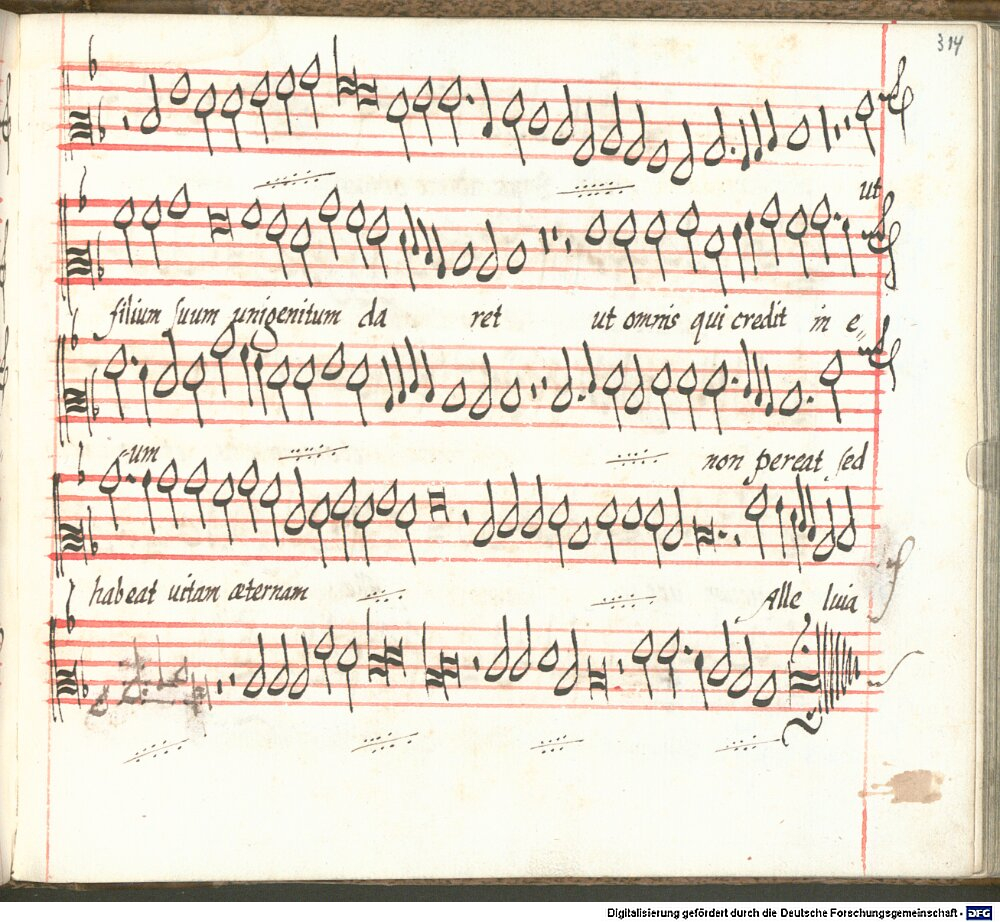 314
ut
filium suum unigenitum da ret ut omnis qui credit in e„
um non pereat sed
habeat uitam æternam Alle luia
Digitalisierung gefördert durch die Deutsche Forschungsgemeinschaft - DFG